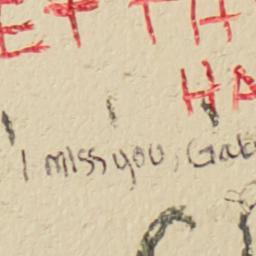 ET TH
HA
I miss you, Gab